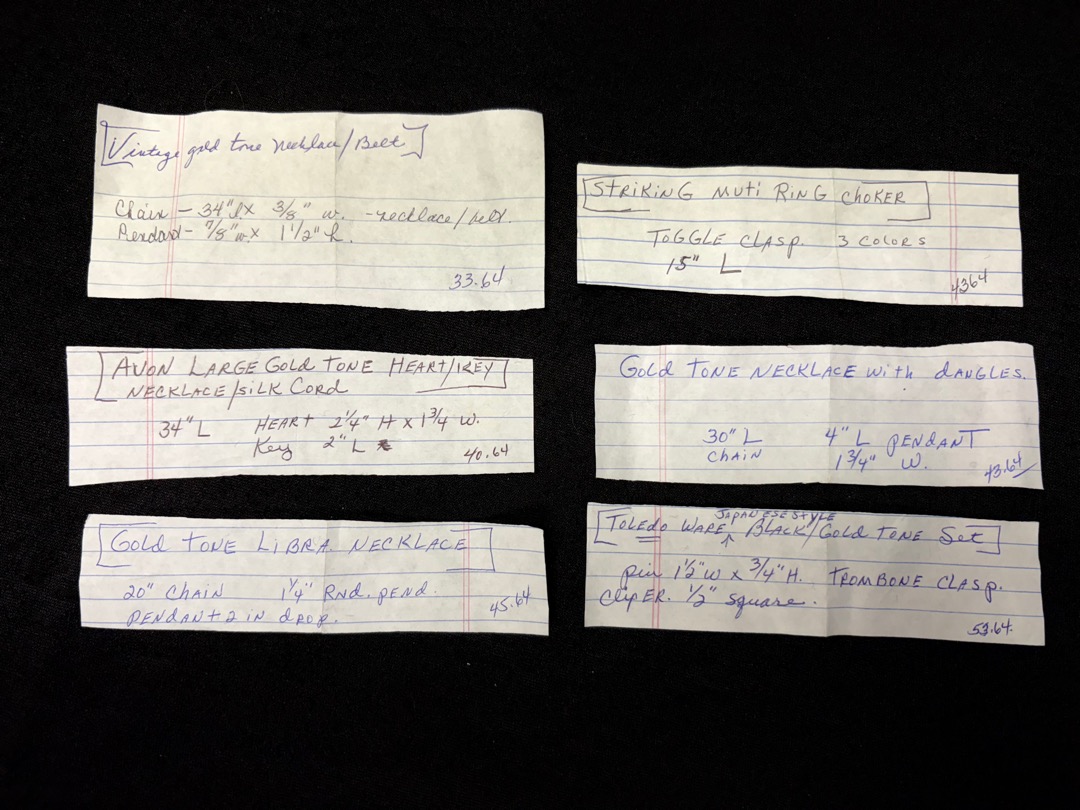 [Vintage gold tone necklace/Belt]
Chain - 34"l x 3/8" w. - necklace/belt.
Pendant - 7/8" w. x 1 1/2" h.
33.64
[STRIKING MUTI RING CHOKER]
TOGGLE CLASP. 3 COLORS
15" L
4364
[AVON LARGE GOLD TONE HEART/KEY
NECKLACE/SILK CORD]
34" L HEART 2 1/4" H x 1 3/4 W.
Key 2" L
40.64
GOLD TONE NECKLACE with DANGLES.
30" L 4" L PENDANT
CHAIN 1 3/4" W.
43.64/
[GOLD TONE LIBRA NECKLACE]
20" CHAIN 1 1/4" RND. PEND.
PENDANT 2 IN DROP.
45.64
JAPANESE STYLE
[TOLEDO WARE ↑ BLACK/GOLD TONE Set]
pin 1 1/2" W x 3/4" H. TROMBONE CLASP.
Clip ER. 1/2" square.
53.64.